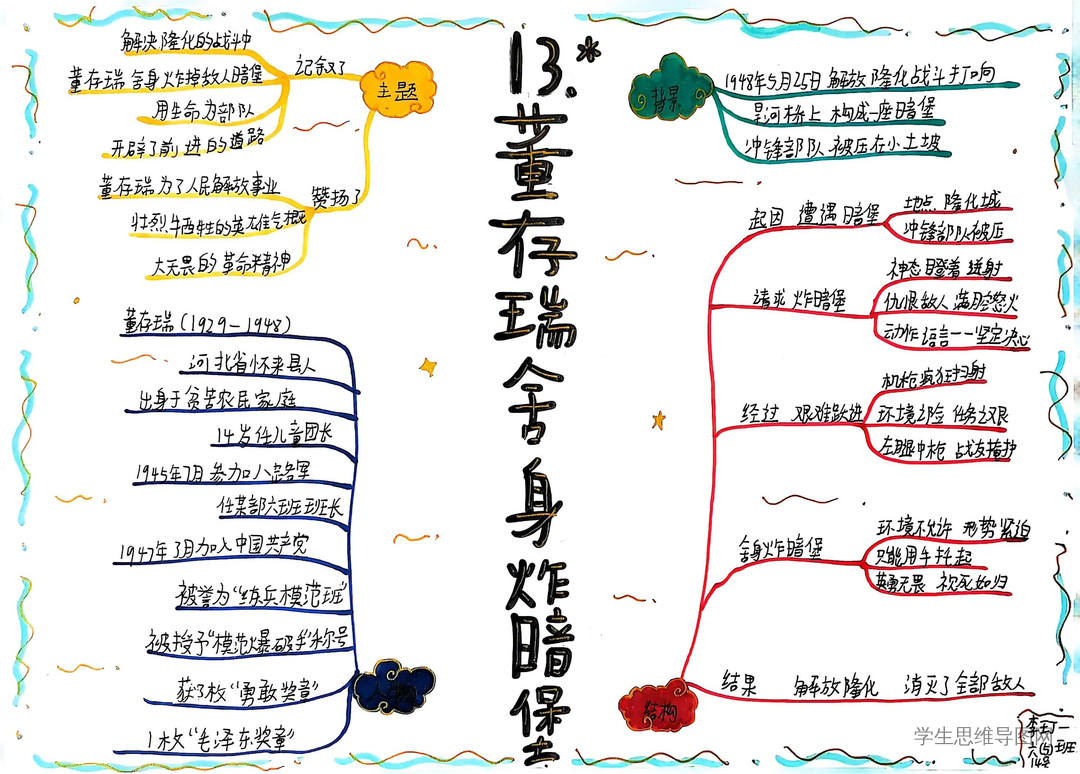 13.*董存瑞舍身炸暗堡
主题
记叙了
解决隆化的战斗中
董存瑞舍身炸掉敌人暗堡
用生命为部队
开辟了前进的道路
赞扬了
董存瑞为了人民解放事业
壮烈牺牲的英雄气概
大无畏的革命精神
董存瑞(1929-1948)
河北省怀来县人
出身于贫苦农民家庭
14岁任儿童团长
1945年7月参加八路军
任某部六班班长
1947年3月加入中国共产党
被誉为“练兵模范班”
被授予“模范爆破手”称号
获3枚“勇敢奖章”
1枚“毛泽东奖章”
背景
1948年5月25日 解放隆化战斗打响
旱河桥上 构成一座暗堡
冲锋部队 被压在小土坡
起因 遭遇暗堡
地点 隆化城
冲锋部队被压
请求 炸暗堡
神态 瞪着 迸射
仇恨敌人 满腔怒火
动作 语言——坚定决心
经过 艰难跃进
机枪疯狂扫射
环境 任务艰
左腿中枪 战友掩护
舍身炸暗堡
环境不允许 形势紧迫
只能用手托起
英勇无畏 视死如归
结果 解放隆化 消灭了全部敌人
结构
学生思维导图网
六(5)班
14号